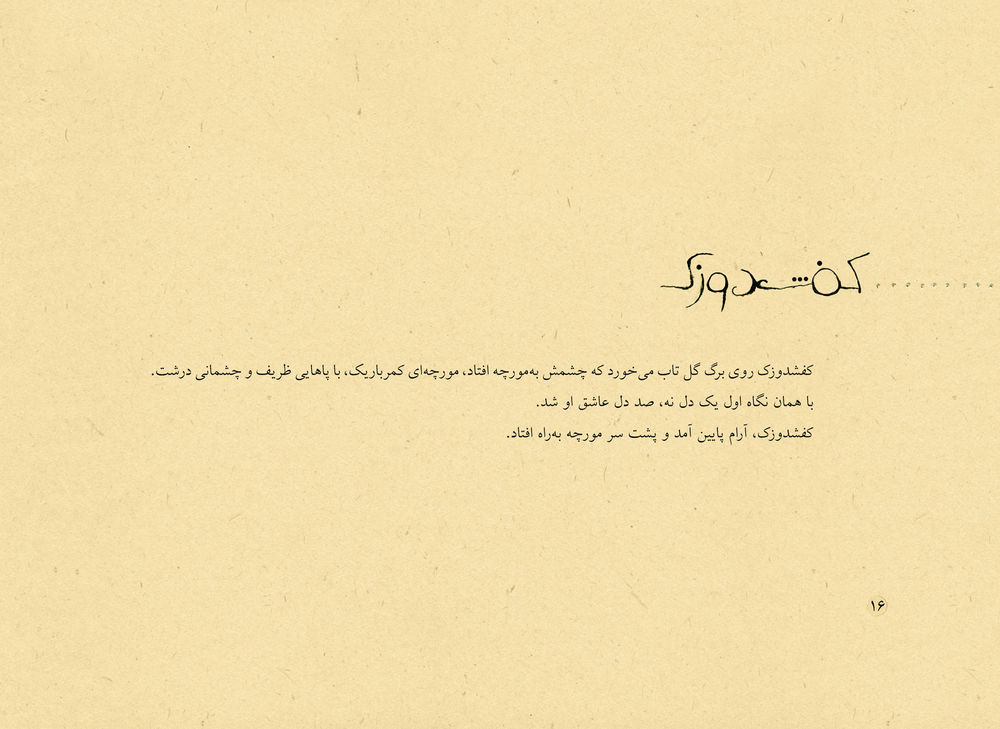 کفشدوزک
کفشدوزک روی برگ گل تاب می‌خورد که چشمش به‌مورچه افتاد، مورچه‌ای کمرباریک، با پاهایی ظریف و چشمانی درشت.
با همان نگاه اول یک دل نه، صد دل عاشق او شد.
کفشدوزک، آرام پایین آمد و پشت سر مورچه به‌راه افتاد.
۱۶